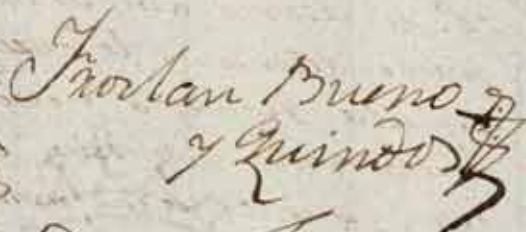 Froilan Bueno
y Quindos